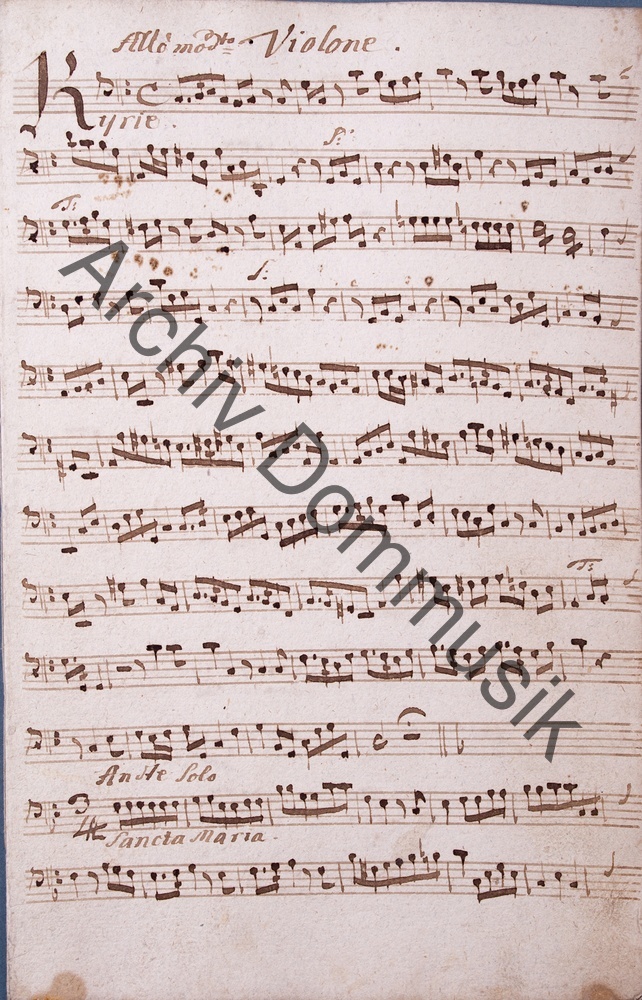 Allo modto Violone.
Kyrie.
S:
T:
S:
T:
Andte Solo
3
4
Sancta Maria.
Archiv Dommusik